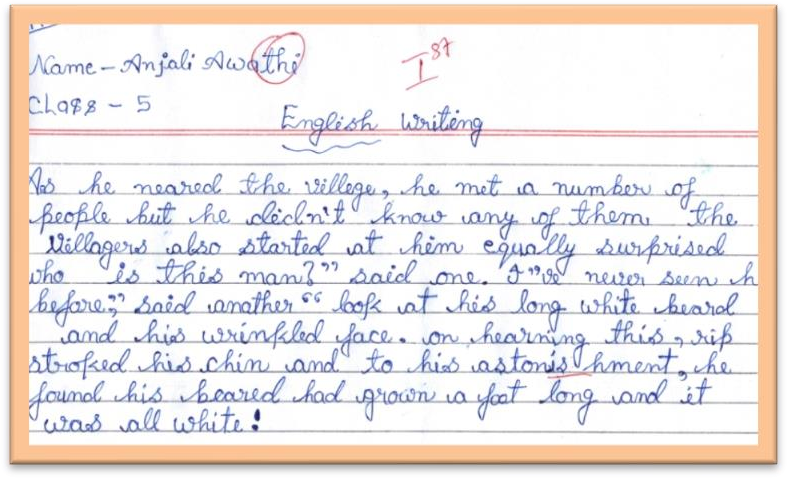 Name - Anjali Awathi
Ist
Class - 5
English Writing
As he neared the villege, he met a number of
people but he didn't know any of them. the
Villagers also started at him equally surprised
who is this man?" said one. I"ve never seen h
before," said another " look at his long white beard
and his wrinkled face. on hearning this, rip
stroked his chin and to his astonishment, he
found his beared had grown a foot long and it
was all white!